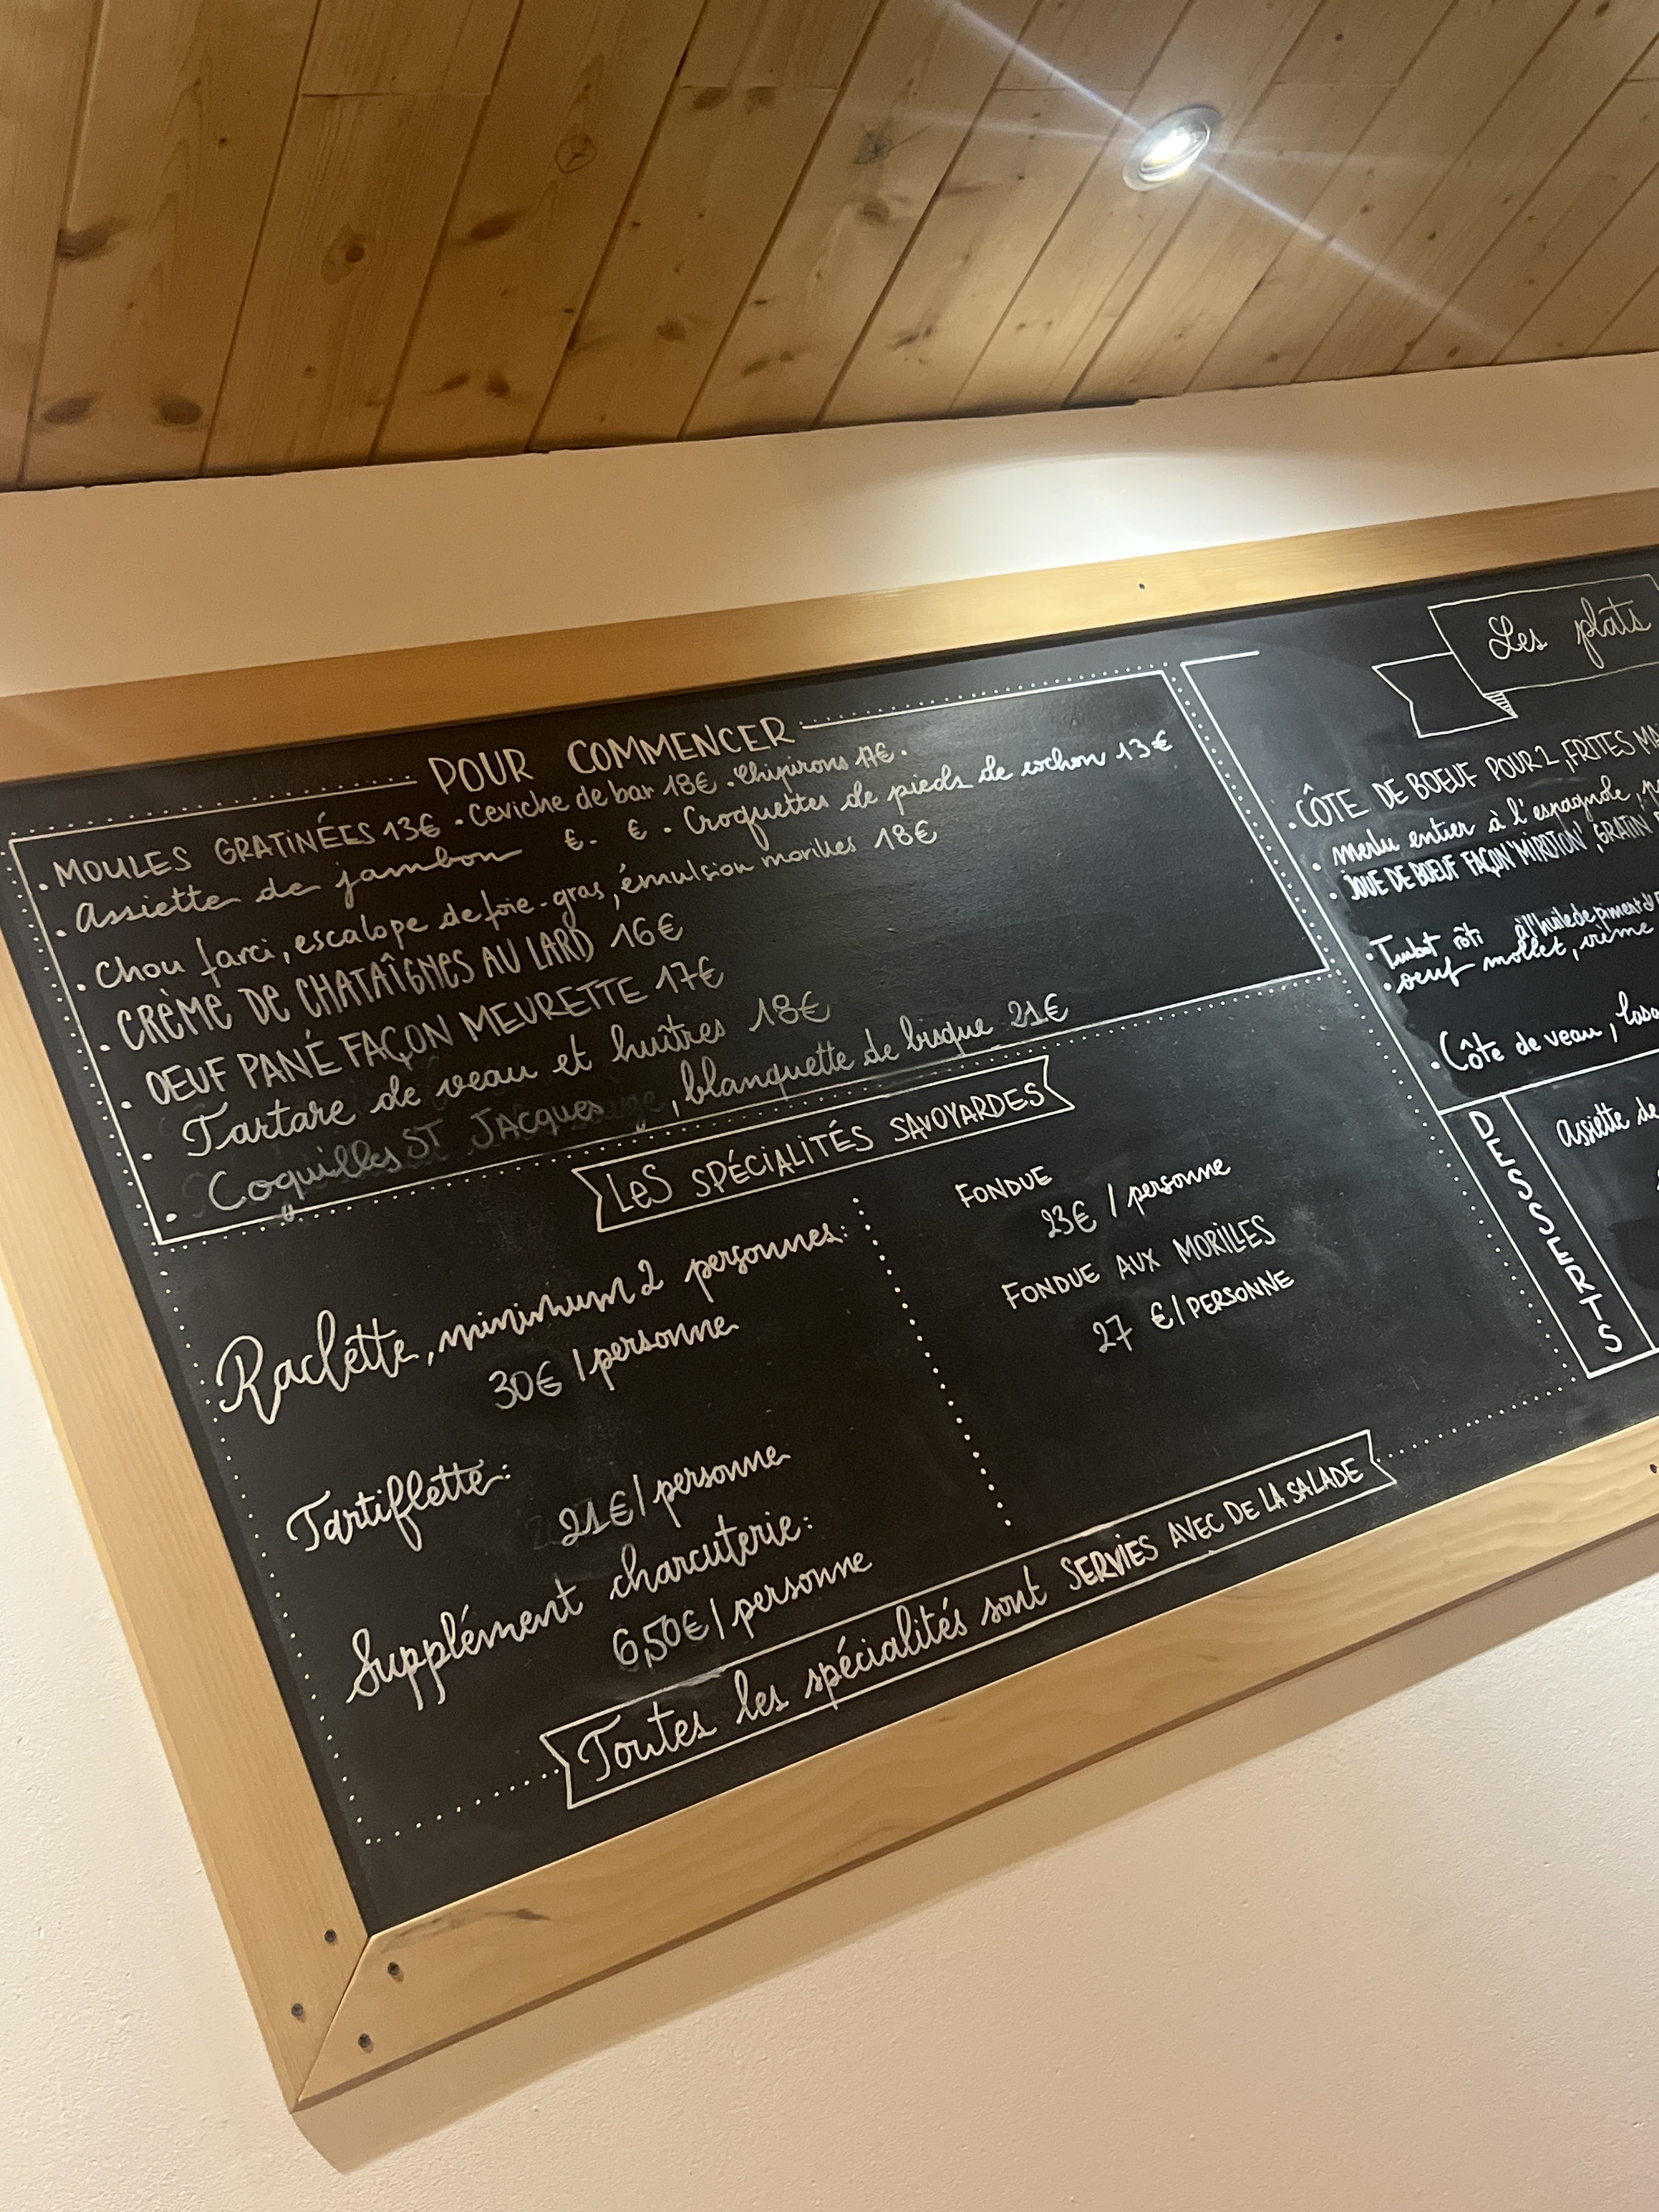 POUR COMMENCER
. MOULES GRATINÉES 13€ . Ceviche de bar 18€ . Chipirons 17€ .
. Assiette de jambon €. € . Croquettes de pieds de cochon 13€
. Chou farci, escalope de foie-gras, émulsion morilles 18€
. CRÈME DE CHATAÎGNES AU LARD 16€
. OEUF PANÉ FAÇON MEURETTE 17€
. Tartare de veau et huîtres 18€
. Coquilles ST JACques , blanquette de bisque 21€
LES SPÉCIALITÉS SAVOYARDES
Raclette, minimum 2 personnes:
30€ / personne
Tartiflette:
21€ / personne
Supplément charcuterie:
6,50€ / personne
FONDUE
23€ / personne
FONDUE AUX MORILLES
27 € / PERSONNE
Toutes les spécialités sont SERVIES AVEC DE LA SALADE
Les plats
. CÔTE DE BOEUF POUR 2, FRITES
. Merlu entier à l'espagnole,
. JOUE DE BOEUF FAÇON 'MIROTON', GRATIN
. Turbot rôti à l'huile de piment
. oeuf mollet, crème
. Côte de veau,
DESSERTS
Assiette de